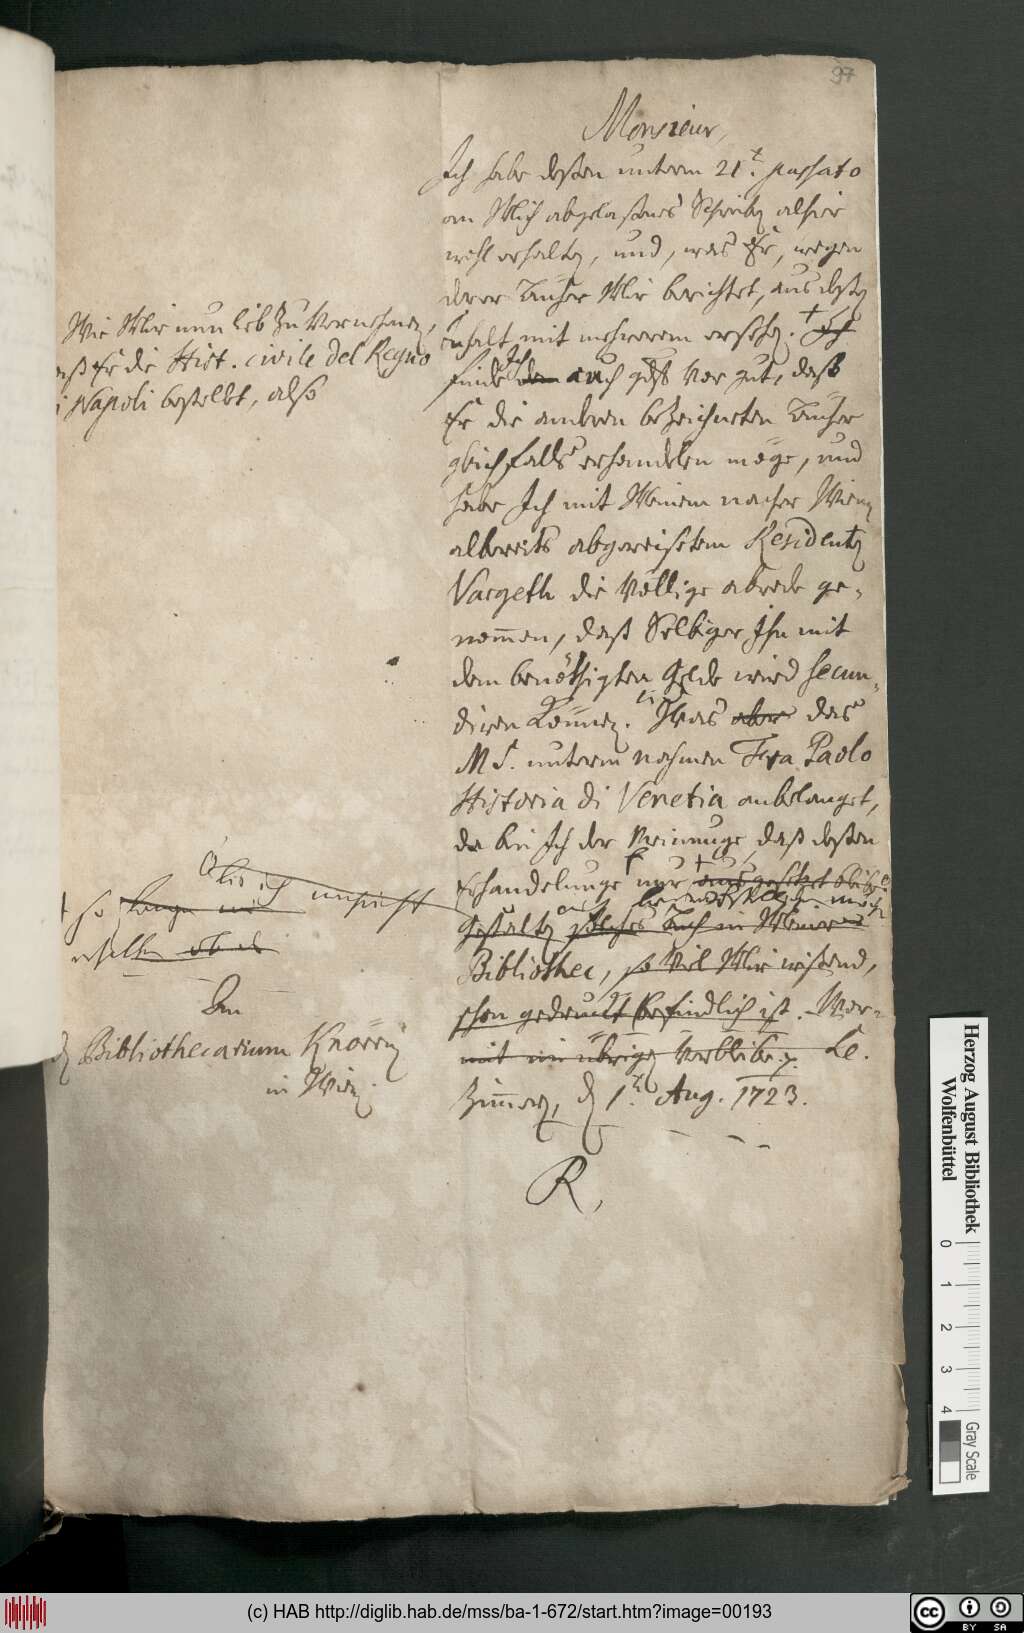 97
Monsieur,
Ich habe deßen unterm 21t. passato
an Mich abgelaßenes Schreiben alhier
wohl erhalten, und, was Er, wegen
derer Bücher Mir berichtet, aus deßen
Inhalt mit mehrerem ersehen. + Ich
finde Ich auch gdst vor gut, daß
Er die anderen bezeichneten Bücher
gleichfalls erhandelen möge, und
habe Ich mit Meinem nacher Wien
albereits abgereisetem Residenten
Vargeth die völlige abrede ge-
nommen, daß Selbiger Ihn mit
dem benöthigten Gelde wird secun-
diren können. Was aber das
MS. unterm nahmen Fra Paolo
Historia di Venetia anbelanget,
da bin Ich der Meinunge, daß deßen
Erhandelunge nur
gestalten solches Buch in Meiner
Bibliothec, so viel Mir wißend,
schon gedruckt befindlich ist. Wor-
mit im übrigen verbleibe. Le.
Zimmer, d 1t. Aug. 1723.
R,
Wie Mir nun lieb zu vernehmen,
daß Er die Hist. civile del Regno
di Napoli bestellt, also
+ so lange
An
den Bibliothecarium Knorren
in Wien.
Herzog August Bibliothek
Wolfenbüttel
0 1 2 3 4
Gray Scale
(c) HAB http://diglib.hab.de/mss/ba-1-672/start.htm?image=00193
cc BY SA